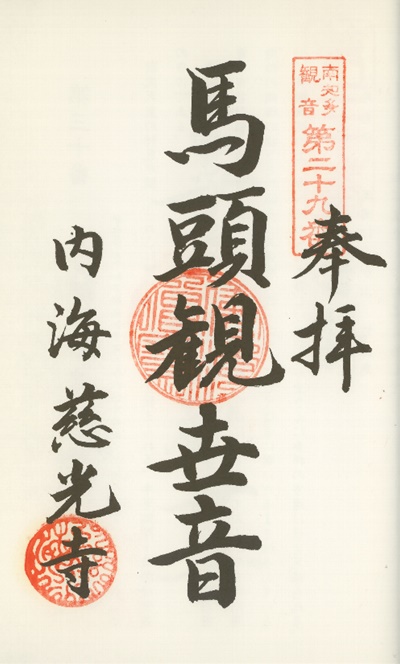 奉拝
南知多
観音
第二十九番
馬頭観世音
内海慈光寺